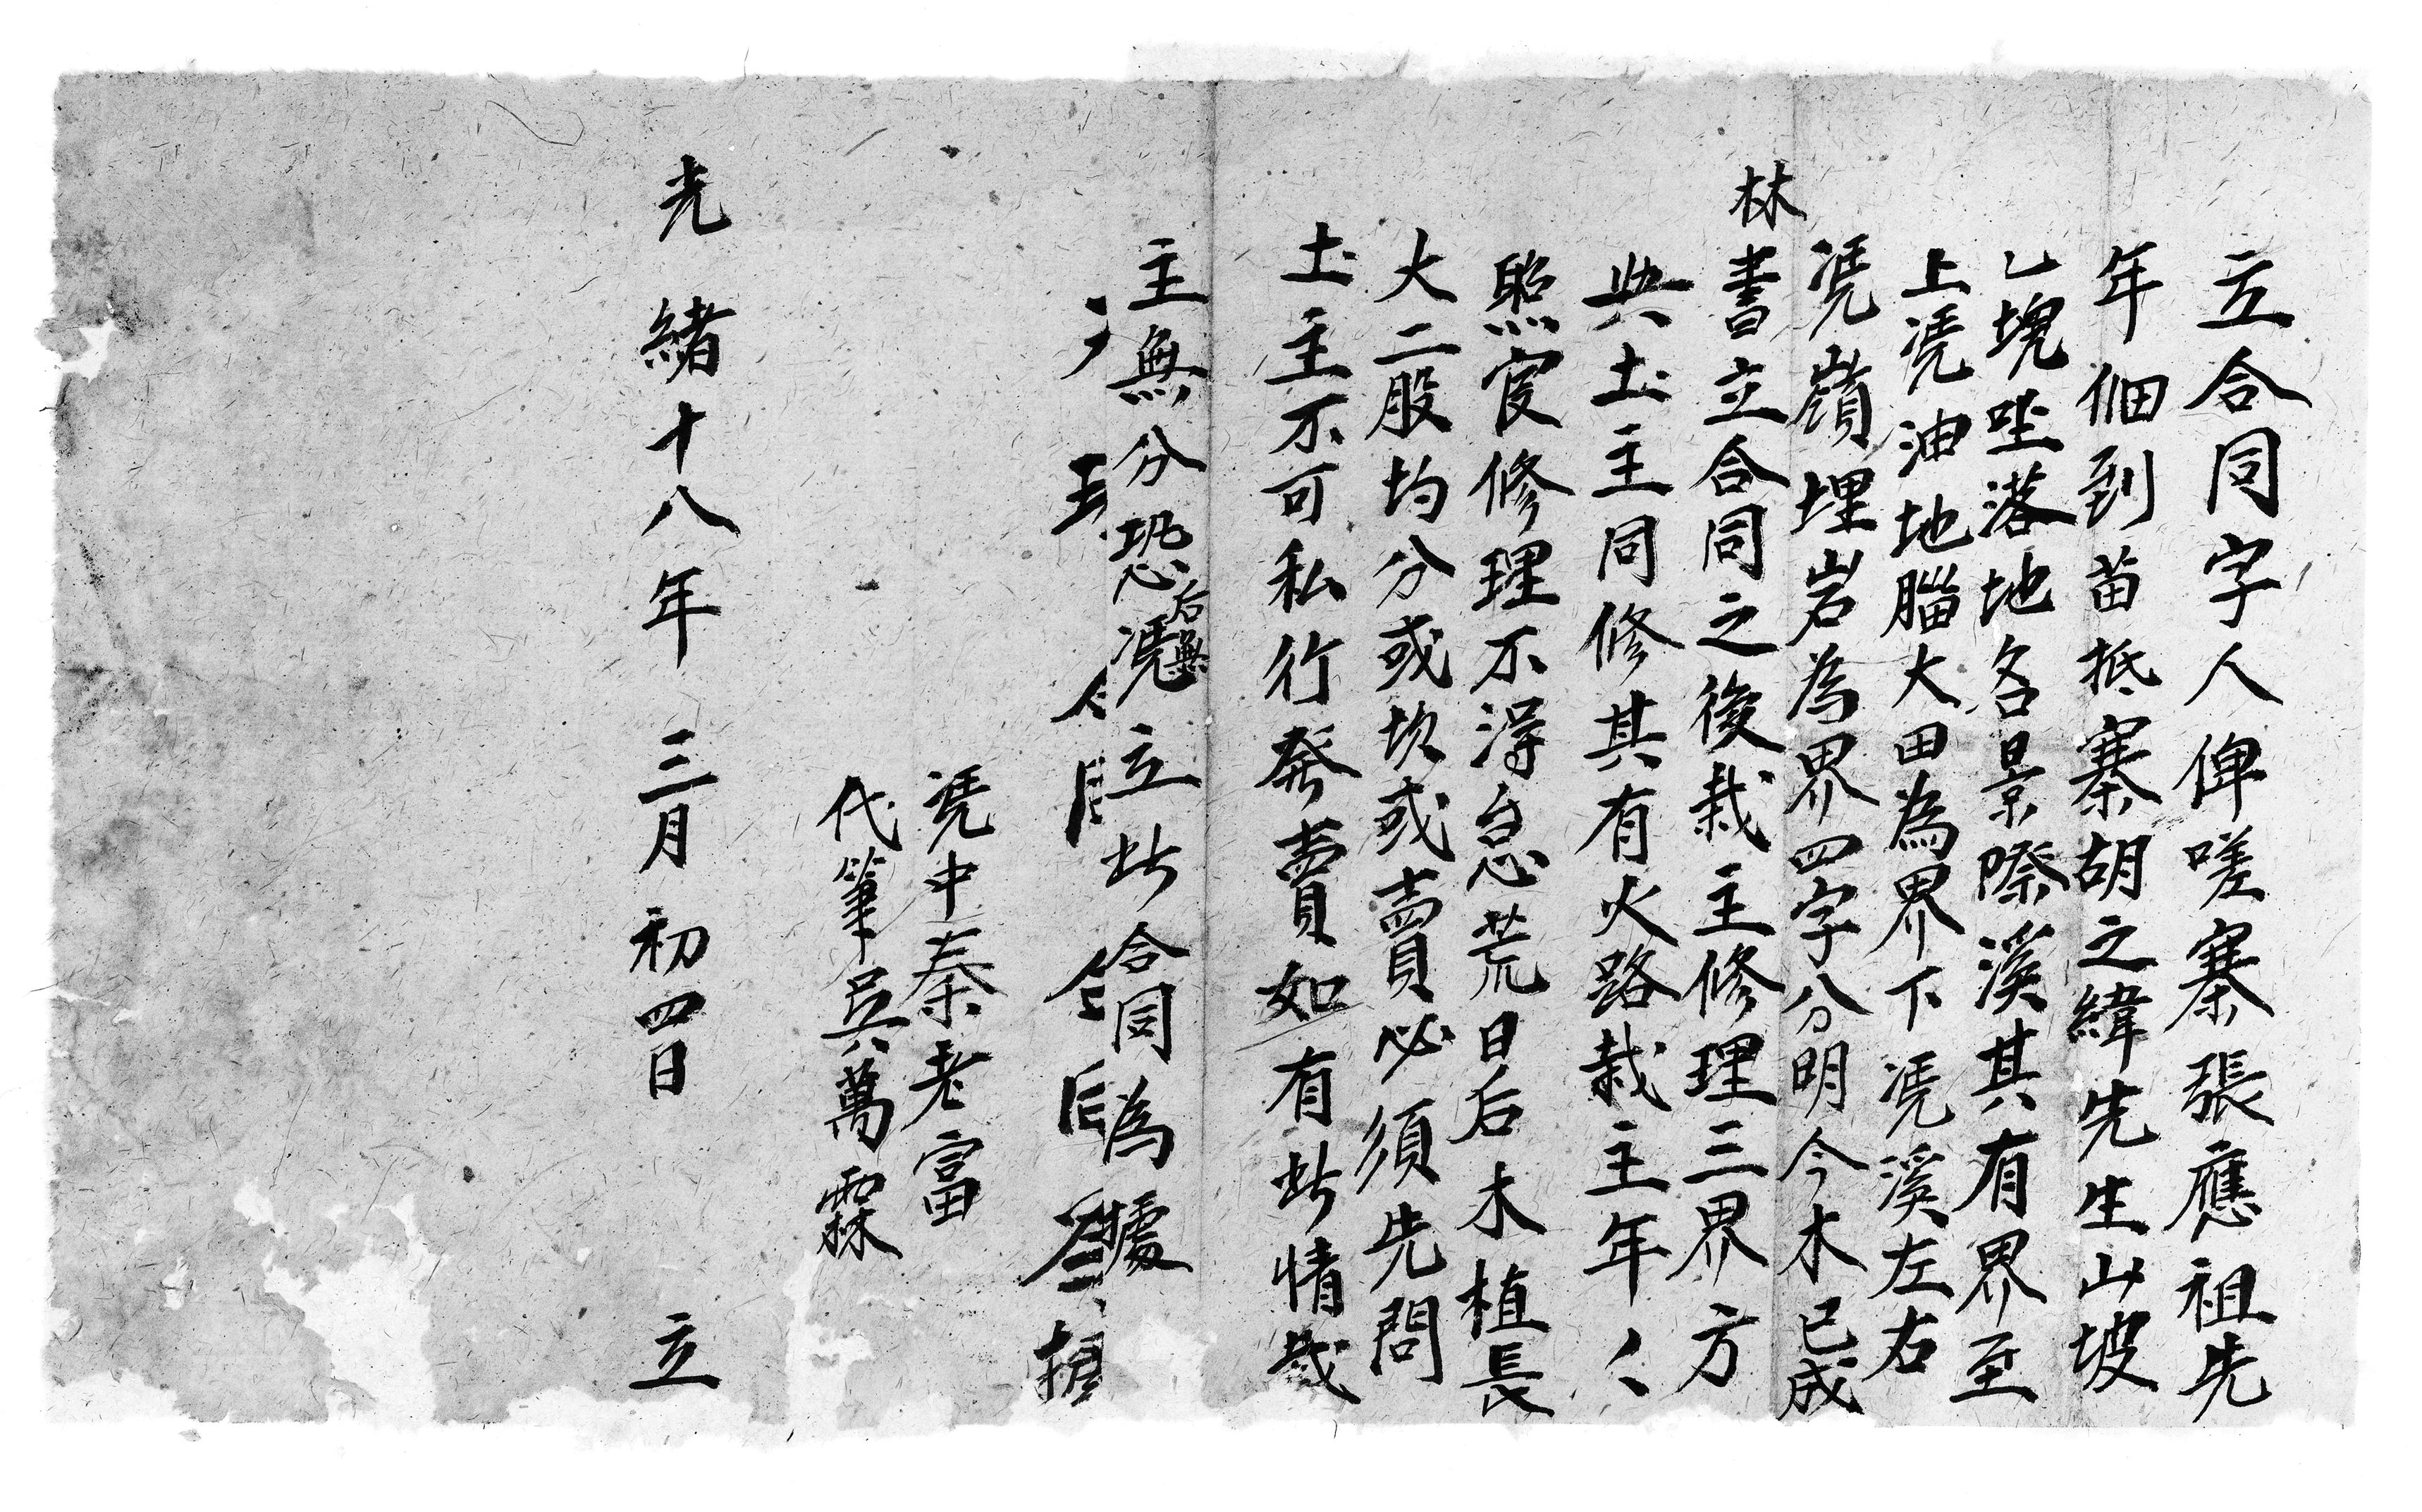 立合同字人俾嗟寨張應祖先
年佃到苗抵寨胡之緯先生山坡
乙塊坐落地名景際溪其有界至
上凴油地腦大田為界下凴溪左右
凴嶺埋岩為界四字分明今木已成
林書立合同之後栽主修理三界方
與土主同修其有火路栽主年〻
照官修理不得怠荒日后木植長
大二股均分或坎或賣必須先問
土主不可私行發賣如有此情栽
主無分恐后無憑立此合同為據
凴中秦老富
代筆吳萬霖
光緒十八年三月初四日立